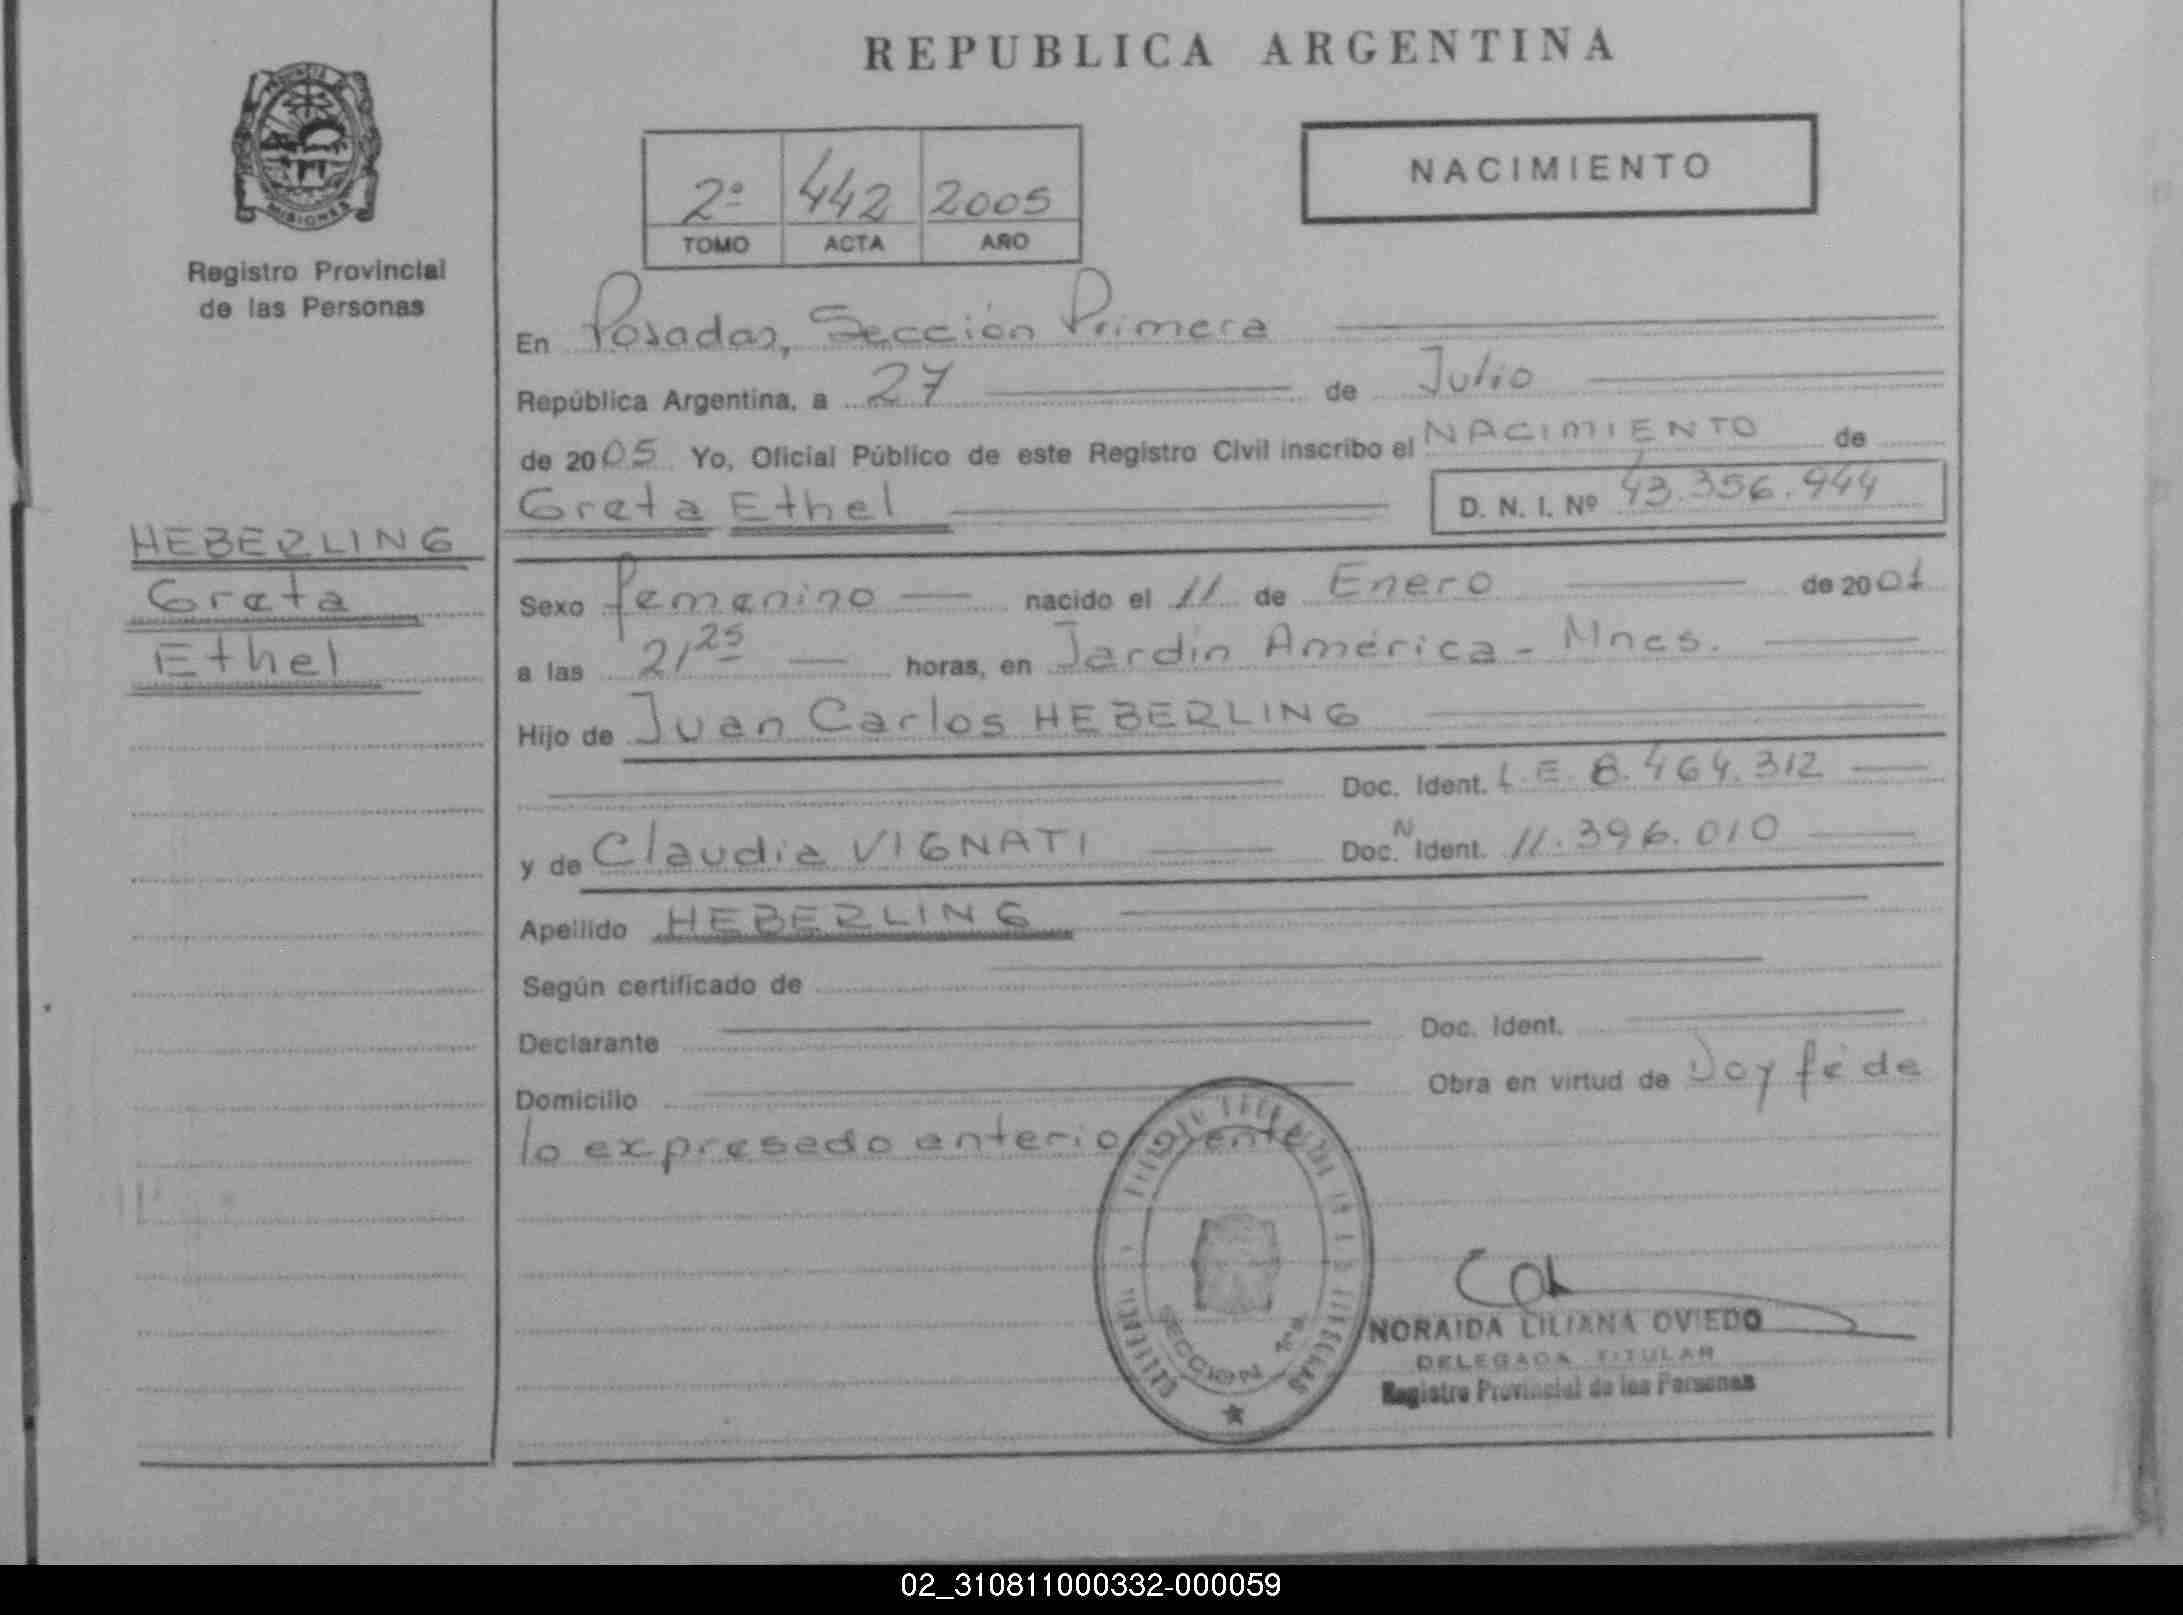 REPUBLICA ARGENTINA
MISIONES
Registro Provincial
de las Personas
2º 442 2005
TOMO ACTA AÑO
NACIMIENTO
En Posadas, Sección Primera
República Argentina, a 27 de Julio
de 2005 Yo, Oficial Público de este Registro Civil inscribo el NACIMIENTO de
Greta Ethel D. N. I. Nº 43.356.944
HEBERLING
Greta
Ethel
Sexo femenino nacido el 11 de Enero de 2001
a las 21,25 horas, en Jardín América - Mnes.
Hijo de Juan Carlos HEBERLING
Doc. Ident. L.E. 8.464.312
y de Claudia VIGNATI Doc. N Ident. 11.396.010
Apellido HEBERLING
Según certificado de
Declarante Doc. Ident.
Domicilio Obra en virtud de Doy fé de
lo expresado anteriormente
SECCION 1ra
NORAIDA LILIANA OVIEDO
DELEGADA TITULAR
Registro Provincial de las Personas
02_310811000332-000059